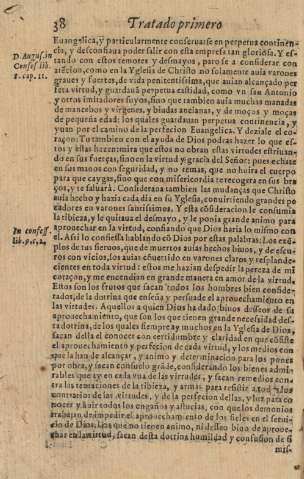 38 Tratado primero
Euangelica, y particularmente conseruarse en perpetua continen-
cia, y desconfiaua poder salir con esta empresa tan gloriosa. Y es-
D. Augus. in
Confes. lib.
8. cap. 11.
tando con estos temores y desmayos, paróse a considerar con
atención, como en la Yglesia de Christo no solamente auia varones
graues y fuertes, de vida penitentissima, que auian alcançado per-
feta virtud, y guardauã perpetua castidad, como vn san Antonio
y otros imitadores suyos, sino que tambien auia muchas manadas
de mancebos y virgines, y biudas ancianas, y de moços y moças
de pequeña edad: los quales guardauan perpetua continencia, y
yuan por el camino de la perfecion Euangelica. Y deziale el co-
raçon: Tu tambien con el ayuda de Dios podras hazer lo que es-
tos y estas hizieron: mira que estos no obran estas virtudes estriuan-
do en sus fuerças, sino en la virtud y gracia del Señor: pues echate
en sus manos con seguridad, y no temas, que no huira el cuerpo
para que caygas, sino que con misericordia te recogera en sus bra-
ços, y te saluará. Consideraua tambien las mudanças que Christo
auia hecho y hazia cada dia en su Yglesia, conuirtiendo grandes pe-
cadores en varones santissimos. Y esta cõsideracion le consumia
la tibieza, y le quitaua el desmayo, y le ponia grande animo para
aprouechar en la virtud, confiando que Dios haria lo mismo con
In confess.
lib. 9. c. 2.
el. Assi lo confiessa hablando cõ Dios por estas palabras: Los exẽ-
plos de tus sieruos, que de muertos auias hecho biuos, y de escu-
ros con vicios, los auias cõuertido en varones claros y resplande-
cientes en toda virtud: estos me hazian despedir la pereza de mi
coraçon, y me encendian en grande manera en amor de la virtud.
Estos son los frutos que sacan todos los hombres bien conside-
rados, de la dotrina que enseña y persuade el aprouechamiento en
las virtudes: Aquellos a quien Dios ha dado biuos desseos de su
aprouechamiento, que son los que tienen grande necessidad des-
ta dotrina, de los quales siempre ay muchos en la Yglesia de Dios,
sacan della el conocer con certidumbre y claridad en que cõsiste
el aprouechamiento y perfecion de cada virtud, y los medios con
que la han de alcançar, y animo y determinacion para los poner
por obra, y sacan consuelo grãde, considerando los bienes admi-
rables que ay en cada vna de las virtudes, y sacan remedios con-
tra las tentaciones de la tibieza, y armas para resistir a todos los
contrarios de las virtudes, y de la perfecion dellas, y luz para co-
nocer y huir todos los engaños y astucias, con que los demonios
trabajan de impedir el aprouechamiento de los fieles en el serui-
cio de Dios. Los que no tienen animo, ni desseo biuo de aproue-
char en la virtud, sacan desta dotrina humildad y confusion de si
mis-